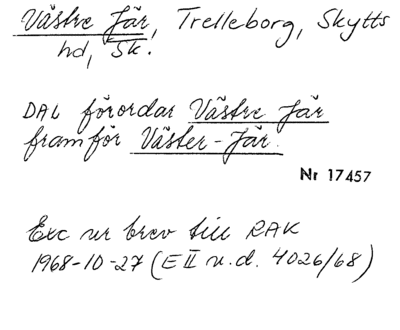 Västre Jär, Trelleborg, Skytts
hd, Sk.
DAL förordar Västre Jär
framför Väster-Jär.
Nr 17457
Exc ur brev till RAK
1968-10-27 (E II u.d. 4026/68)